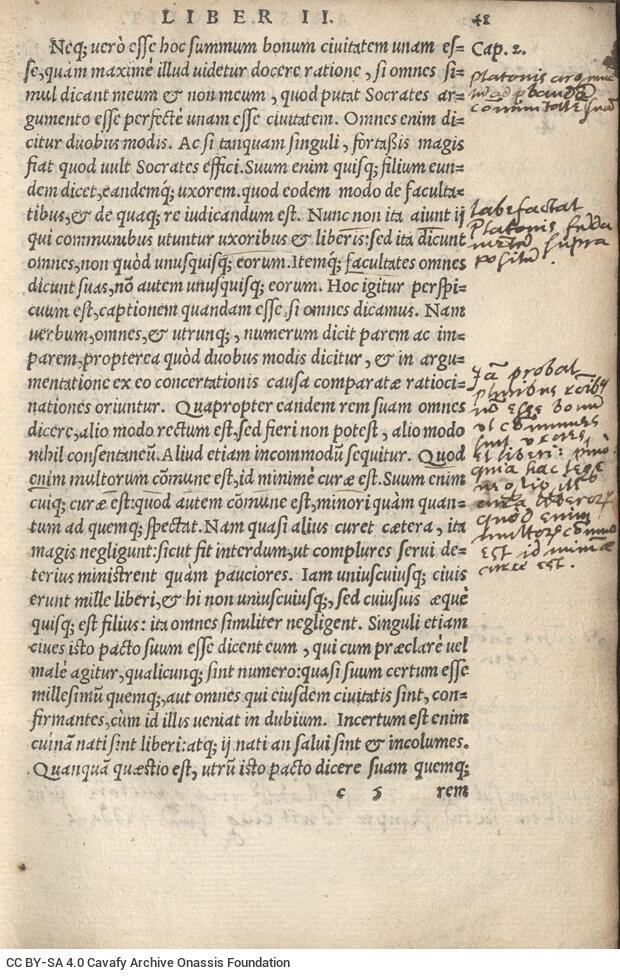 LIBER II. 48
Neq; verò esse hoc summum bonum ciuitatem unam es=
se, quàm maximè illud uidetur docere ratione, si omnes si=
mul dicant meum & non meum, quod putat Socrates ar=
gumento esse perfectè unam esse ciuitatem. Omnes enim di=
citur duobus modis. Ac si tanquam singuli, fortaßis magis
fiat quod uult Socrates effici. Suum enim quisq; filium eun=
dem dicet, eandemq; uxorem. quod eodem modo de faculta=
tibus, & de quaq; re iudicandum est. Nunc non ita aiunt ij
qui communibus utuntur uxoribus & liberis: sed ita dicunt
omnes, non quòd unusquisq; eorum. Itemq; facultates omnes
dicunt suas, nõ autem unusquisq; eorum. Hoc igitur perspi=
cuum est, captionem quandam esse, si omnes dicamus. Nam
uerbum, omnes, & utrunq;, numerum dicit parem ac im=
parem, propterea quòd duobus modis dicitur, & in argu=
mentatione ex eo concertationis causa comparatæ ratioci=
nationes oriuntur. Quapropter eandem rem suam omnes
dicere, alio modo rectum est, sed fieri non potest, alio modo
nihil consentaneũ. Aliud etiam incommodũ sequitur. Quod
enim multorum cõmune est, id minimè curæ est. Suum enim
cuiq; curæ est: quod autem cõmune est, minori quàm quan=
tum ad quemq; spectat. Nam quasi alius curet cætera, ita
magis negligunt: sicut fit interdum, ut complures serui de=
terius ministrent quàm pauciores. Iam uniuscuiusq; ciuis
erunt mille liberi, & hi non uniuscuiusq;, sed cuiusuis æquè
quisq; est filius: ita omnes similiter negligent. Singuli etiam
ciues isto pacto suum esse dicent eum, qui cum præclarè uel
malè agitur, qualicunq; sint numero: quasi suum certum esse
millesimũ quemq;, aut omnes qui eiusdem ciuitatis sint, con=
firmantes, cùm id illis ueniat in dubium. Incertum est enim
cuinã nati sint liberi: atq; ij nati an salui sint & incolumes.
Quanquã quæstio est, utrũ isto pacto dicere suam quemq;
c 5 rem
Cap. 2.
Platonis
labefactat
Platonis
supra
probat
pluribus
esse
ut cõmunes
sint uxores
et liberi:
quia hac lege
quod enim
multorũ
est id
curæ est.
CC BY-SA 4.0 Cavafy Archive Onassis Foundation